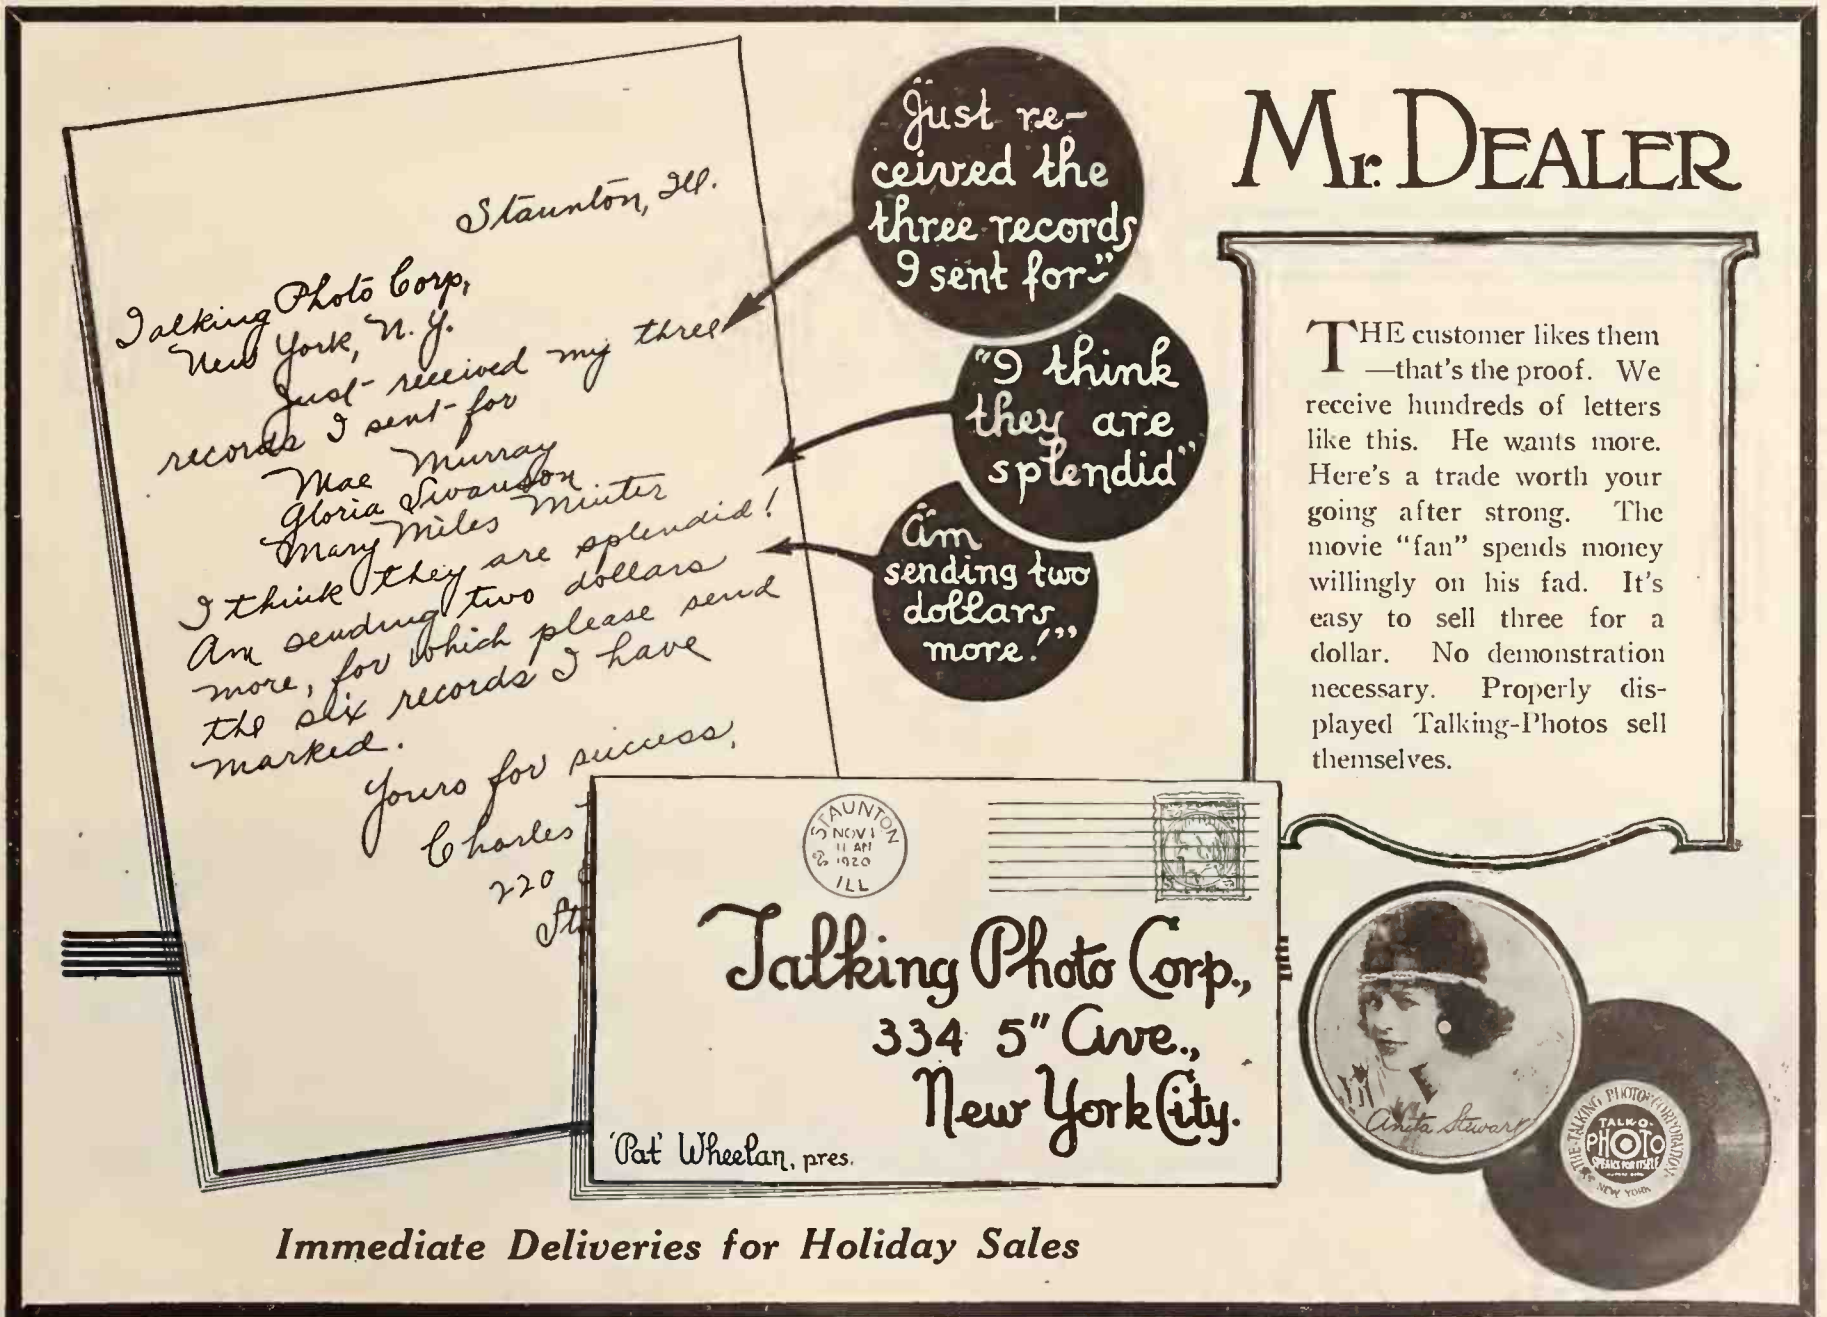 Staunton, Ill.
Talking Photo Corp,
New York, N. Y.
Just received my three
records I sent for
Mae Murray
Gloria Swanson
Mary Miles Minter
I think they are splendid!
Am sending two dollars
more, for which please send
the six records I have
marked.
Yours for success,
Charles
220
"Just re-
ceived the
three records
I sent for-"
"I think
they are
splendid"
"Am
sending two
dollars
more!"
Mr. DEALER
THE customer likes them
—that's the proof. We
receive hundreds of letters
like this. He wants more.
Here's a trade worth your
going after strong. The
movie "fan" spends money
willingly on his fad. It's
easy to sell three for a
dollar. No demonstration
necessary. Properly dis-
played Talking-Photos sell
themselves.
STAUNTON
NOV 1
11 AM
1920
ILL
Talking Photo Corp.,
334 5" Ave.,
New York City.
'Pat' Wheelan, pres.
Anita Stewart
THE TALKING PHOTO CORPORATION
TALK-O-
PHOTO
SPEAKS FOR ITSELF
NEW YORK
Immediate Deliveries for Holiday Sales